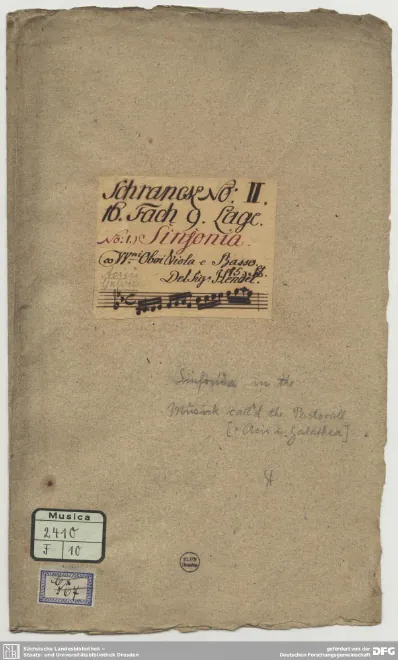 Schranck No: II.
16. Fach 9. Lage.
No: 1.) Sinfonia.
co VVni Oboi Viola e Basso.
Del Sigr Hendel.
Sinfonia in the
Musick call'd the Pastorall
[= Acis u. Galathea]
Musica
2410
F 10
Sächsische Landesbibliothek –
Staats- und Universitätsbibliothek Dresden
gefördert von der
Deutschen Forschungsgemeinschaft
DFG